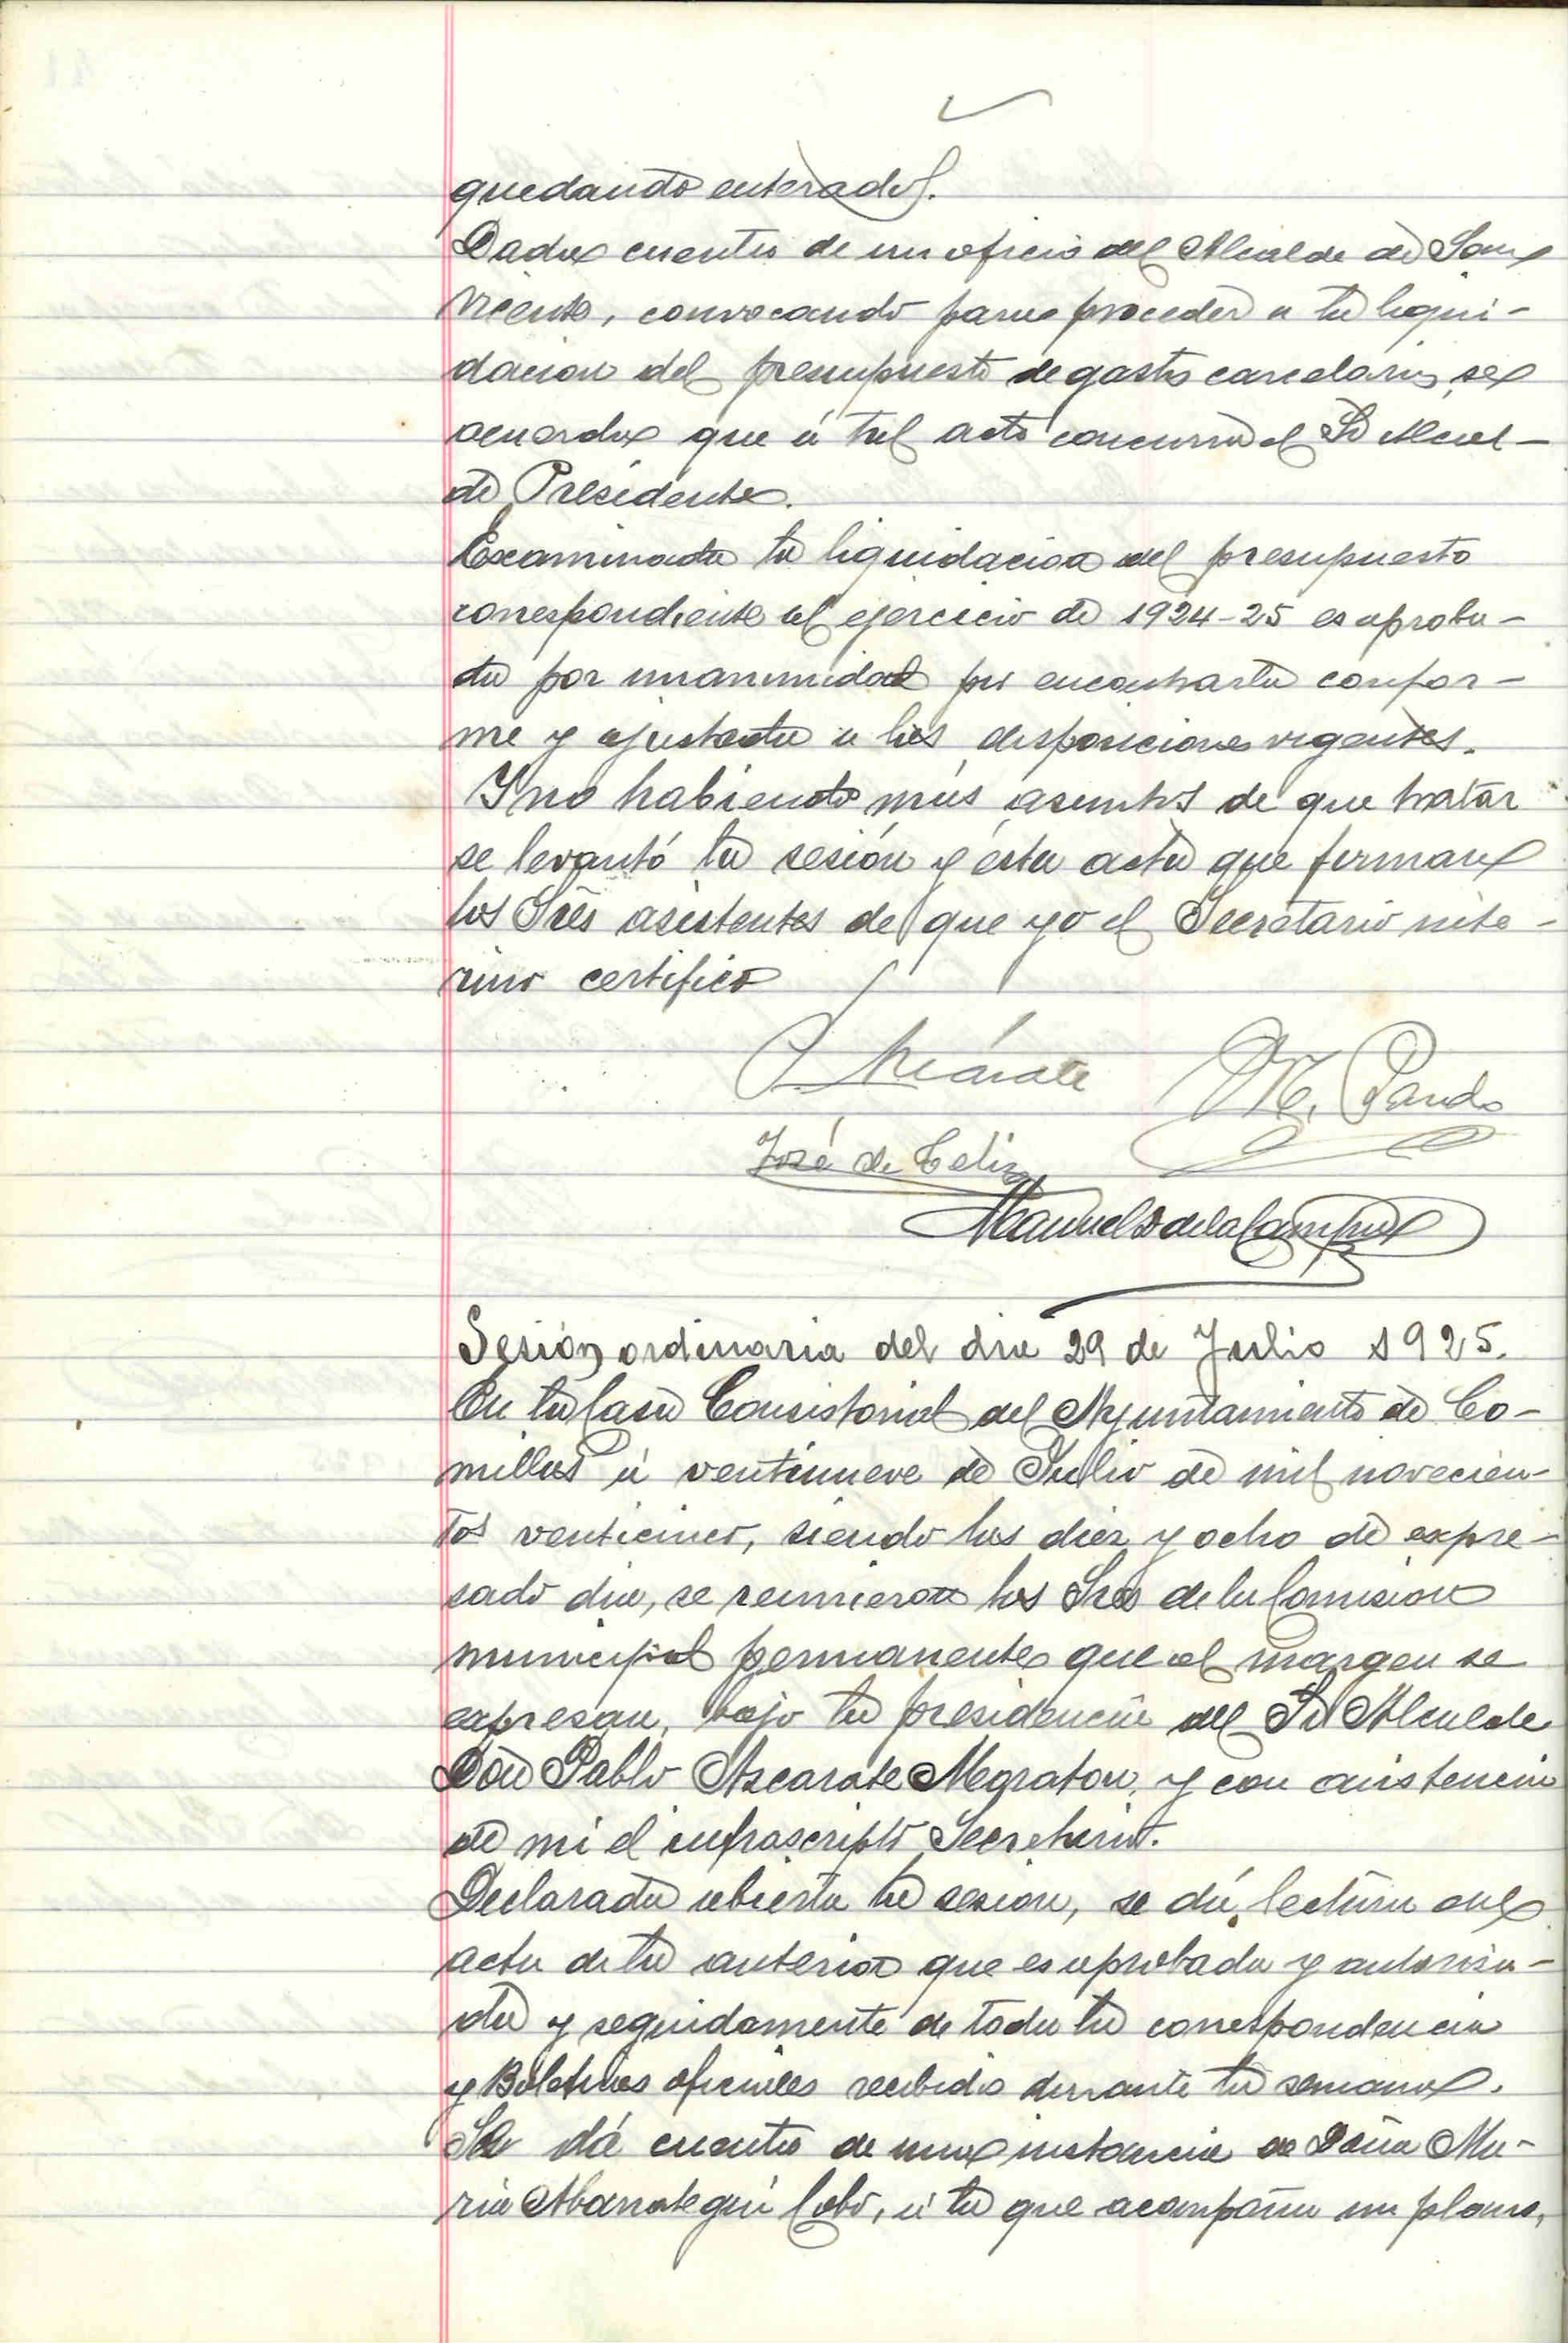 quedando enterados.
Dada cuenta de un oficio del Alcalde de San
Vicente, convocando para proceder a la liqui-
dacion del presupuesto de gastos carcelarios, se
acuerda que á tal acto concurra el Sr Alcal-
de Presidente.
Examinada la liquidacion del presupuesto
correspondiente al ejercicio de 1924-25 es aproba-
da por unanimidad por encontrarla confor-
me y ajustada a las disposiciones vigentes.
Y no habiendo más asuntos de que tratar
se levantó la sesión y ésta acta que firman
los Sres asistentes de que yo el Secretario inte-
rino certifico
P Azcárate M. Pando
José de Celis
Manuel S de la Campa
Sesión ordinaria del dia 29 de Julio 1925.
En la Casa Consistorial del Ayuntamiento de Co-
millas á ventinueve de Julio de mil novecien-
tos venticinco, siendo las diez y ocho de expre-
sado dia, se reunieron los Sres de la Comision
municipal permanente que al margen se
expresan, bajo la presidencia del Sr Alcalde
Don Pablo Azcarate Megraton, y con asistencia
de mi el infrascripto Secretario.
Declarada abierta la sesion, se dá lectura del
acta de la anterior que es aprobada y autoriza-
da y seguidamente de toda la correspondencia
y Boletines oficiales recibidos durante la semana.
Se dá cuenta de una instancia de Doña Ma-
ria Abarrategui Cobo, á la que acompaña un plano,